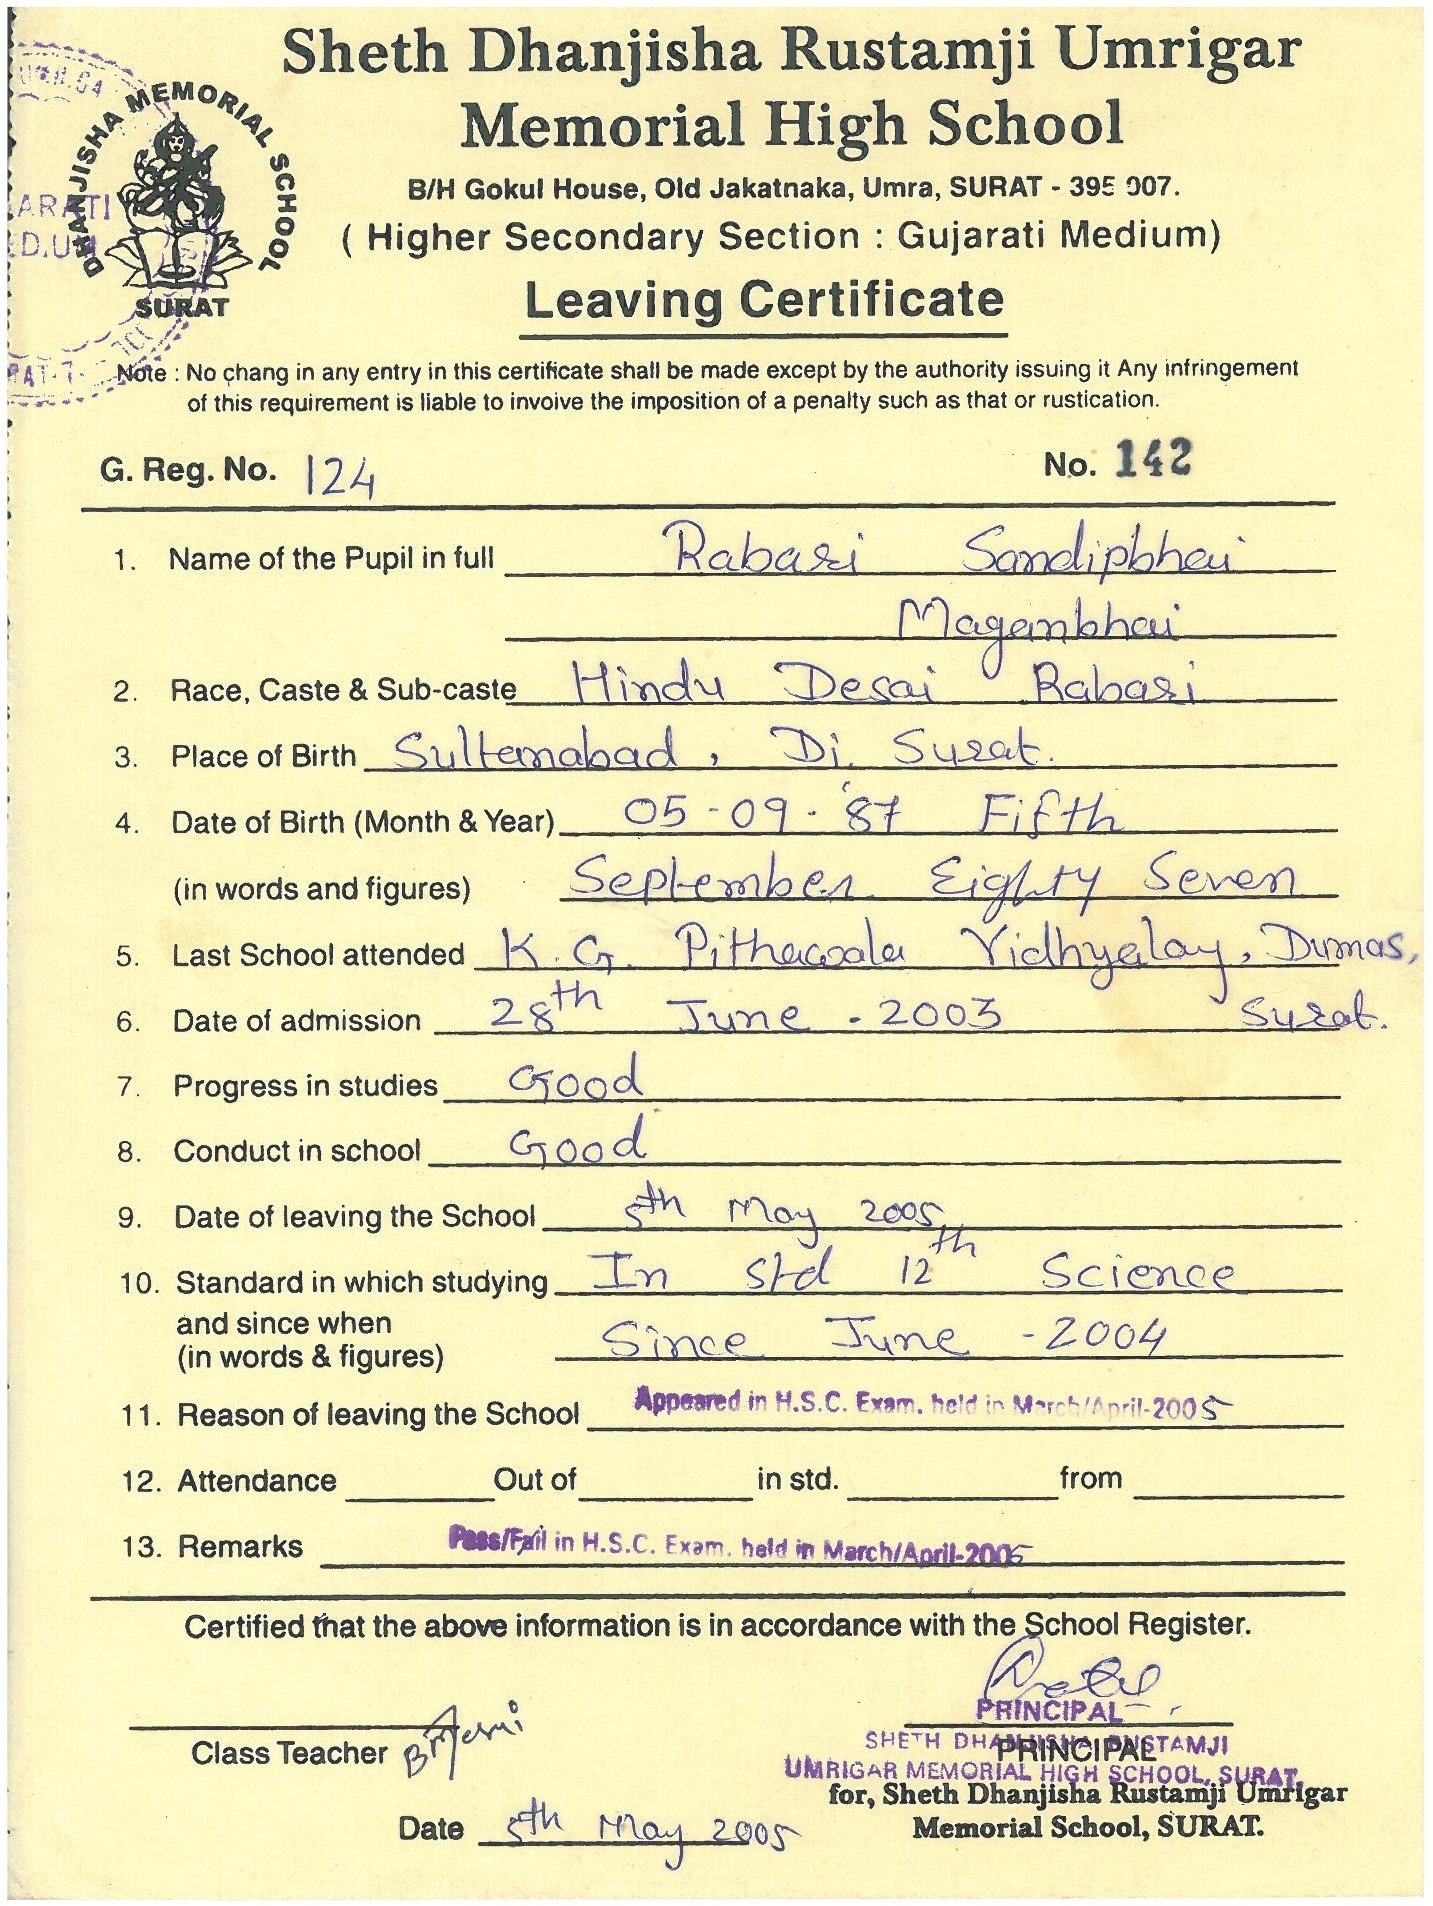 Sheth Dhanjisha Rustamji Umrigar
Memorial High School
B/H Gokul House, Old Jakatnaka, Umra, SURAT - 395 007.
( Higher Secondary Section : Gujarati Medium)
DHANJISHA MEMORIAL SCHOOL
SURAT
Leaving Certificate
Note : No chang in any entry in this certificate shall be made except by the authority issuing it Any infringement
of this requirement is liable to invoive the imposition of a penalty such as that or rustication.
G. Reg. No. 124 No. 142
1. Name of the Pupil in full Rabari Sandipbhai
Maganbhai
2. Race, Caste & Sub-caste Hindu Desai Rabari
3. Place of Birth Sultanabad, Di. Surat.
4. Date of Birth (Month & Year) 05-09-'87 Fifth
(in words and figures) September Eighty Seven
5. Last School attended K. G. Pithawala Vidhyalay, Dumas,
Surat.
6. Date of admission 28th June - 2003
7. Progress in studies Good
8. Conduct in school Good
9. Date of leaving the School 5th May 2005
10. Standard in which studying In std 12th Science
and since when
(in words & figures) Since June - 2004
11. Reason of leaving the School Appeared in H.S.C. Exam. held in March/April-2005
12. Attendance Out of in std. from
13. Remarks Pass/Fail in H.S.C. Exam. held in March/April-2005
Certified that the above information is in accordance with the School Register.
PRINCIPAL
SHETH DHANJISHA RUSTAMJI
UMRIGAR MEMORIAL HIGH SCHOOL, SURAT.
Class Teacher
PRINCIPAL
for, Sheth Dhanjisha Rustamji Umrigar
Memorial School, SURAT.
Date 5th May 2005